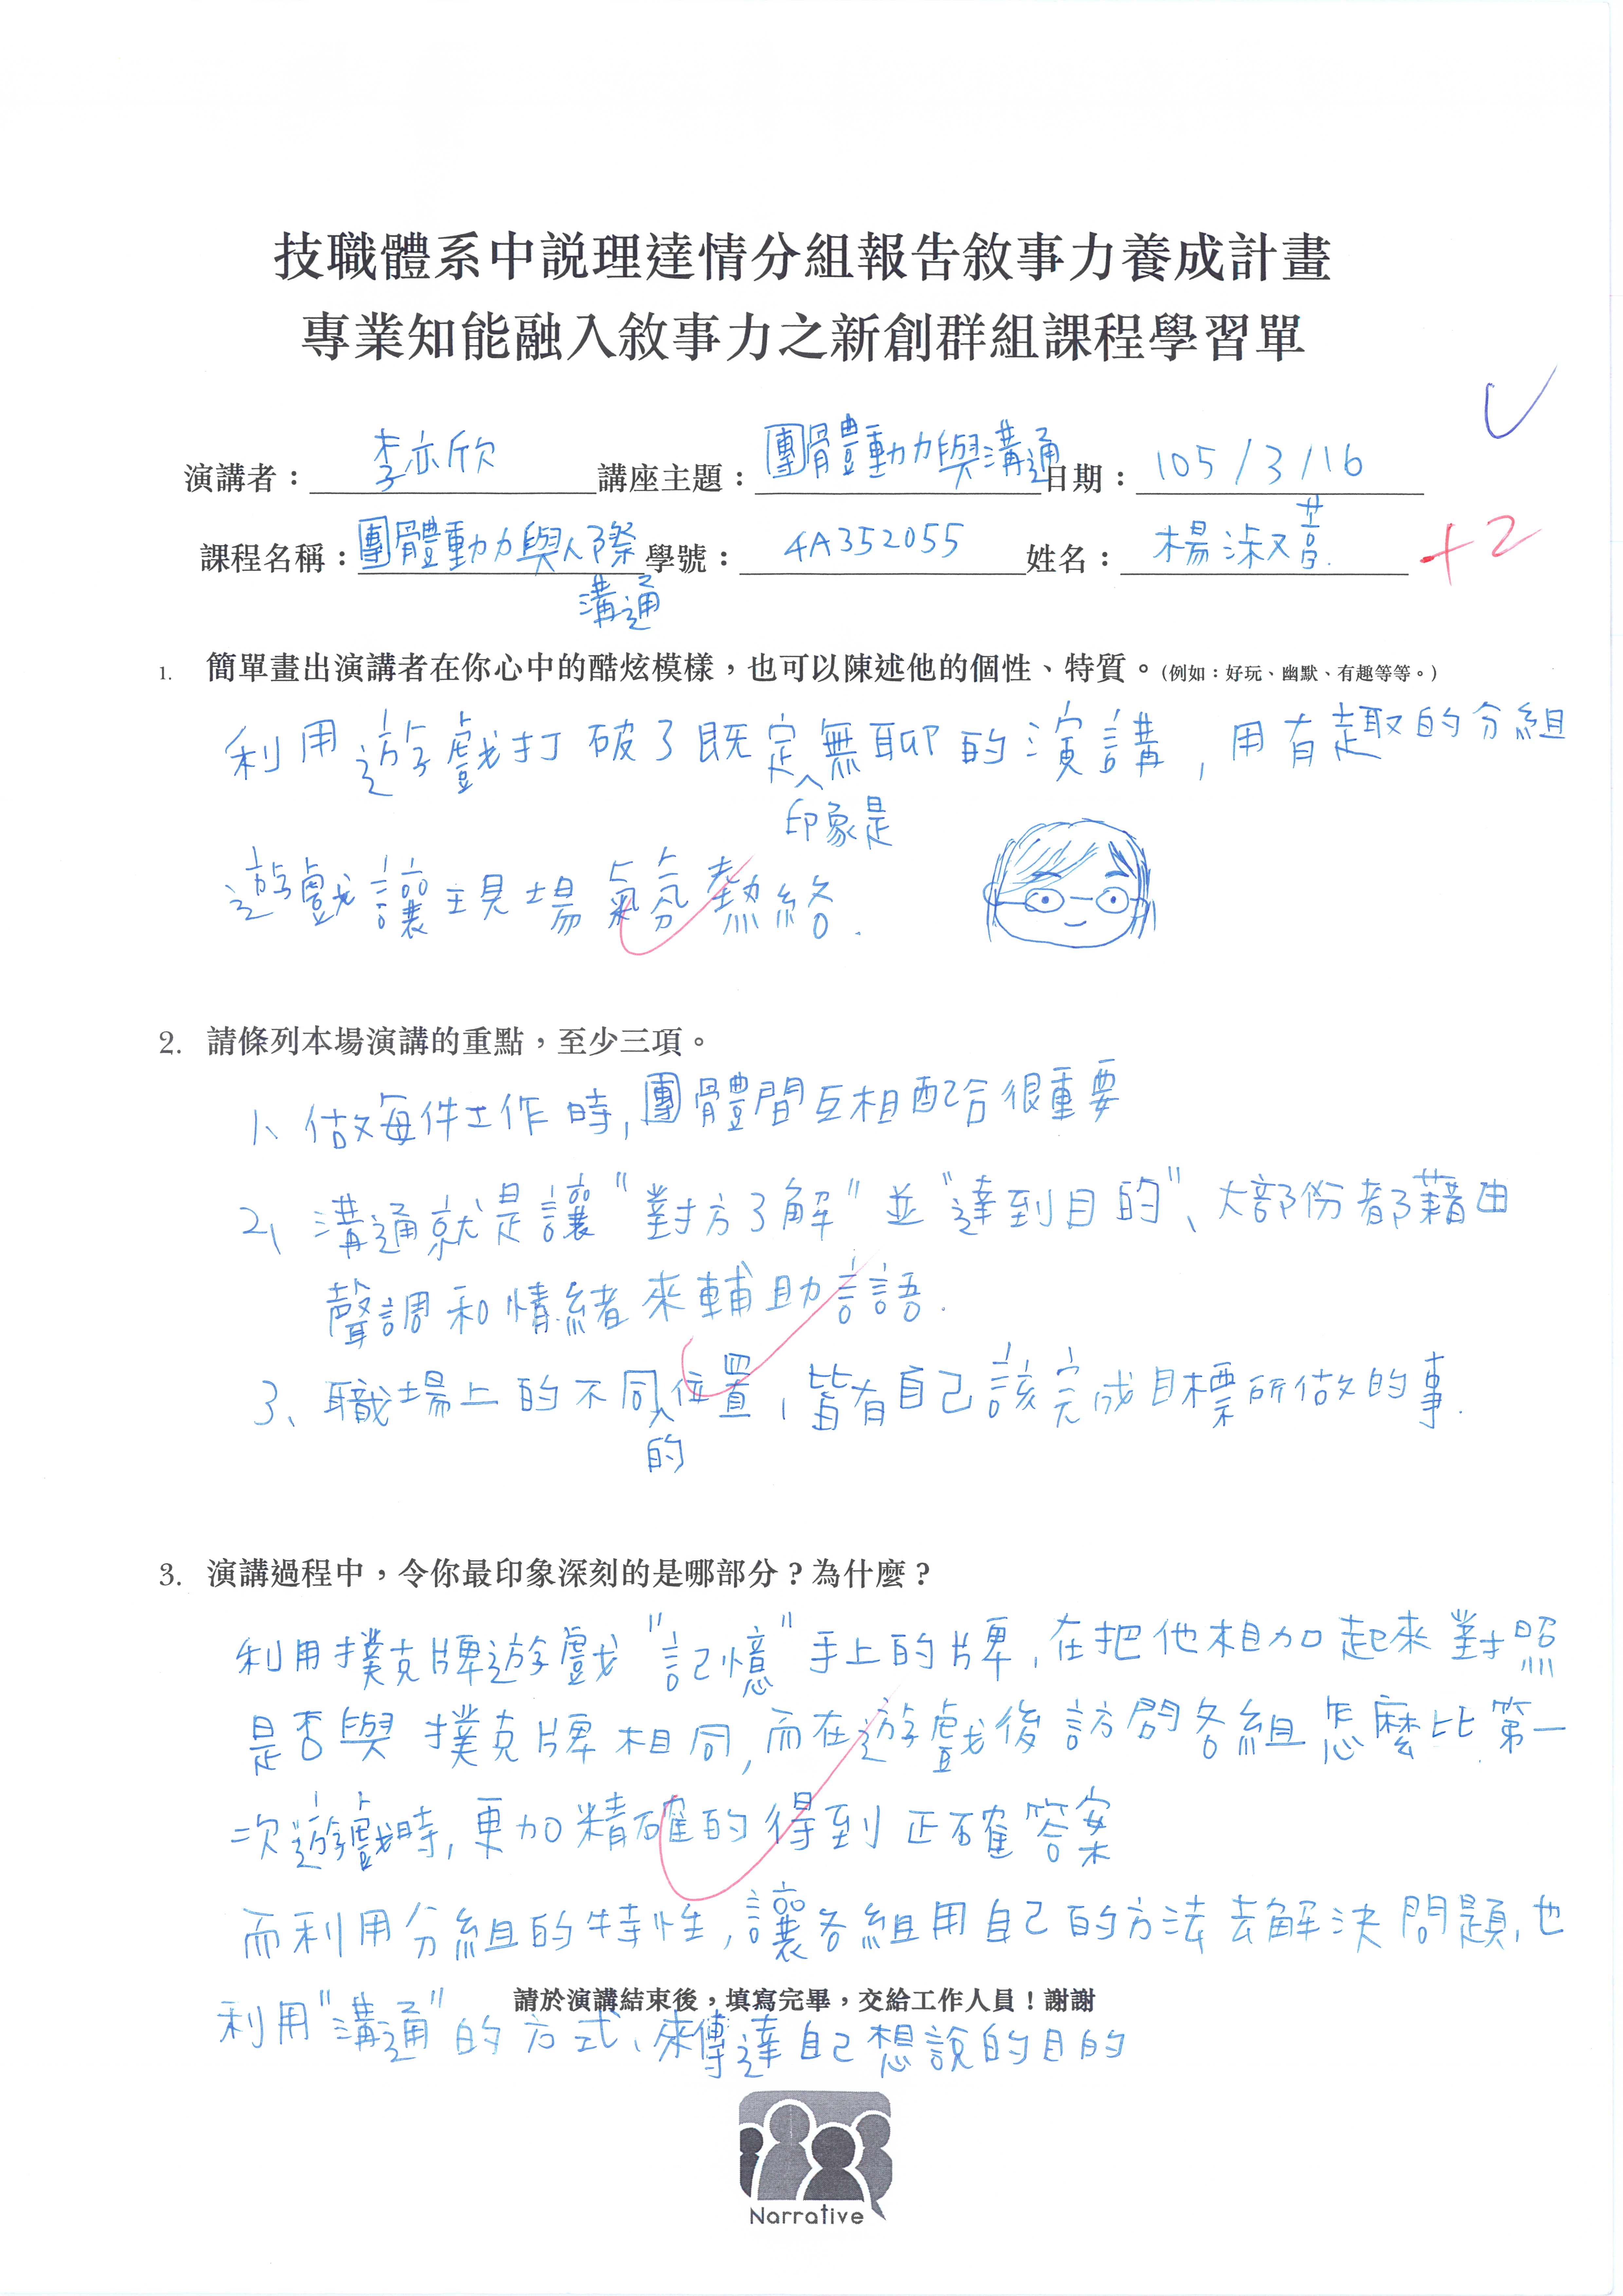 技職體系中說理達情分組報告敘事力養成計畫
專業知能融入敘事力之新創群組課程學習單
演講者：李亦欣 講座主題：團體動力與溝通 日期：105/3/16
課程名稱：團體動力與人際溝通 學號：4A352055 姓名：楊淑菁
+2
1. 簡單畫出演講者在你心中的酷炫模樣，也可以陳述他的個性、特質。(例如：好玩、幽默、有趣等等。)
利用遊戲打破了既定印象是無聊的演講，用有趣的分組
遊戲讓現場氣氛熱絡.
2. 請條列本場演講的重點，至少三項。
1、做每件工作時,團體間互相配合很重要
2、溝通就是讓"對方了解"並"達到目的"、大部份都藉由
聲調和情緒來輔助言語.
3、職場上的不同的位置,皆有自己該完成目標所做的事.
3. 演講過程中，令你最印象深刻的是哪部分？為什麼？
利用撲克牌遊戲"記憶"手上的牌,在把他相加起來對照
是否與撲克牌相同,而在遊戲後訪問各組怎麼比第一
次遊戲時,更加精確的得到正確答案
而利用分組的特性,讓各組用自己的方法去解決問題,也
請於演講結束後，填寫完畢，交給工作人員！謝謝
利用"溝通"的方式、來傳達自己想說的目的
Narrative